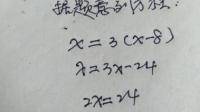 据题意列方程:
x=3(x-8)
x=3x-24
2x=24